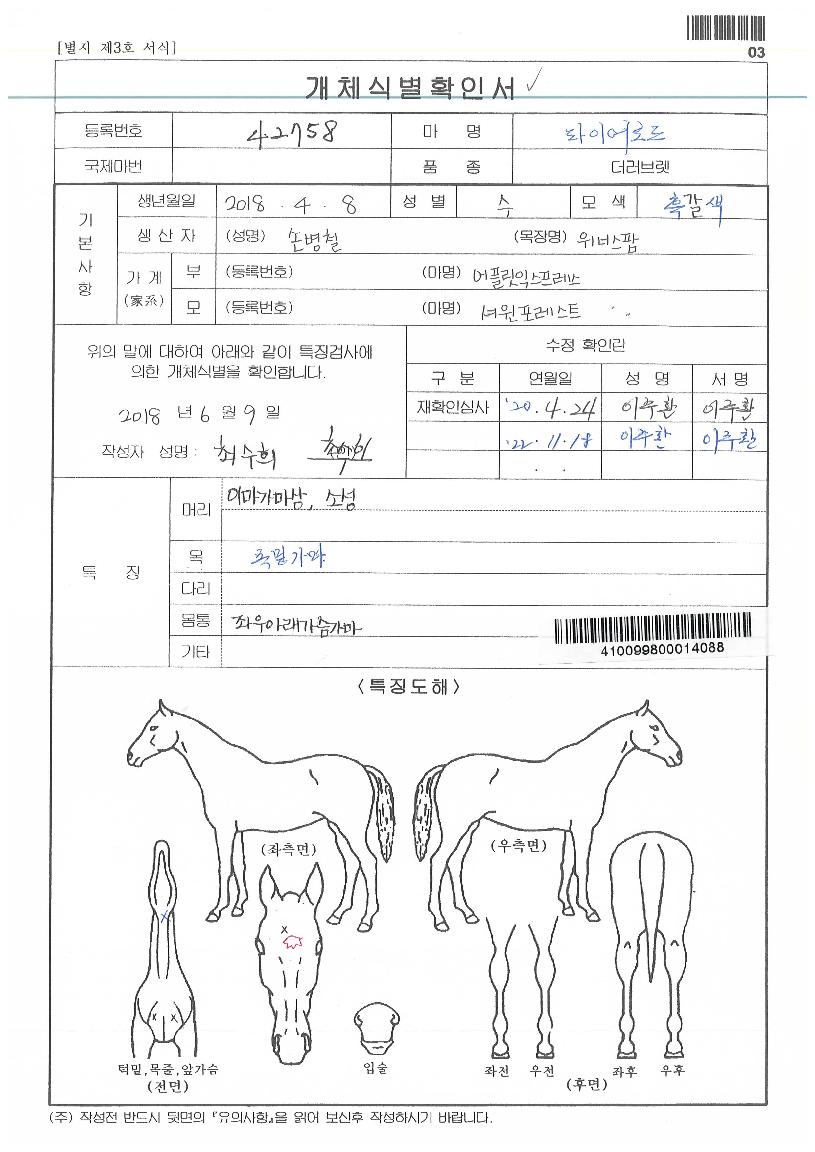 [별지 제3호 서식]
03
개체식별확인서
등록번호 42758 마 명 와이어로드
국제마번 품 종 더러브렛
기본사항
생년월일 2018 . 4 . 8 성 별 수 모 색 흑갈색
생 산 자 (성명) 손병철 (목장명) 위너스팜
가 계 (家系) 부 (등록번호) (마명) 머플릿익스프레스
모 (등록번호) (마명) 셔원포레스트
위의 말에 대하여 아래와 같이 특징검사에
의한 개체식별을 확인합니다.
2018 년 6 월 9 일
작성자 성명 : 최수희
수정 확인란
구 분 연월일 성 명 서 명
재확인심사 '20. 4. 24 이주환 이주환
'22. 11. 18 이주환 이주환
. .
특 징
머리 이마가마삼, 소성
목 목밑가마
다리
몸통 좌우아래가슴가마
기타
410099800014088
<특징도해>
(좌측면) (우측면)
턱밑,목줄,앞가슴
(전면)
입술
좌전 우전 좌후 우후
(후면)
(주) 작성전 반드시 뒷면의 『유의사항』을 읽어 보신후 작성하시기 바랍니다.